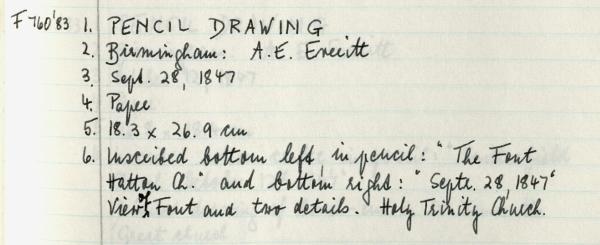 F760'83 1. PENCIL DRAWING
2. Birmingham: A.E. Everitt
3. Sept. 28, 1847
4. Paper
5. 18.3 x 26.9 cm
6. Inscribed bottom left in pencil: "The Font
Hatton Ch." and bottom right: "Septr. 28, 1847"
View of Font and two details. Holy Trinity Church.